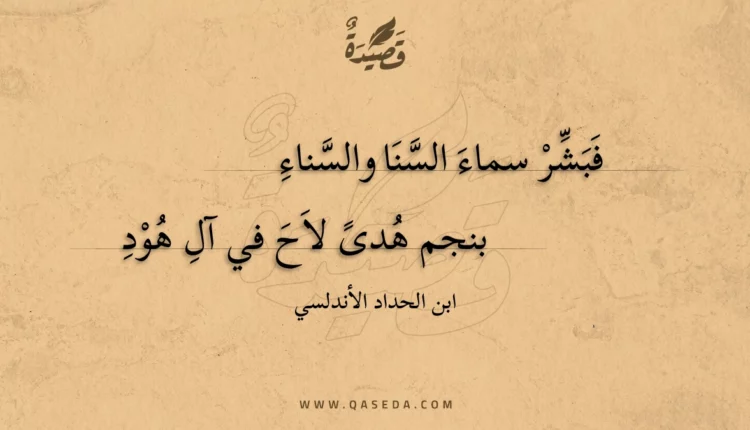 قَصِيْدَةٌ
فَبَشِّرْ سماءَ السَّنَا والسَّناءِ
بنجم هُدىً لاَحَ في آلِ هُوْدِ
ابن الحداد الأندلسي
WWW.QASEDA.COM